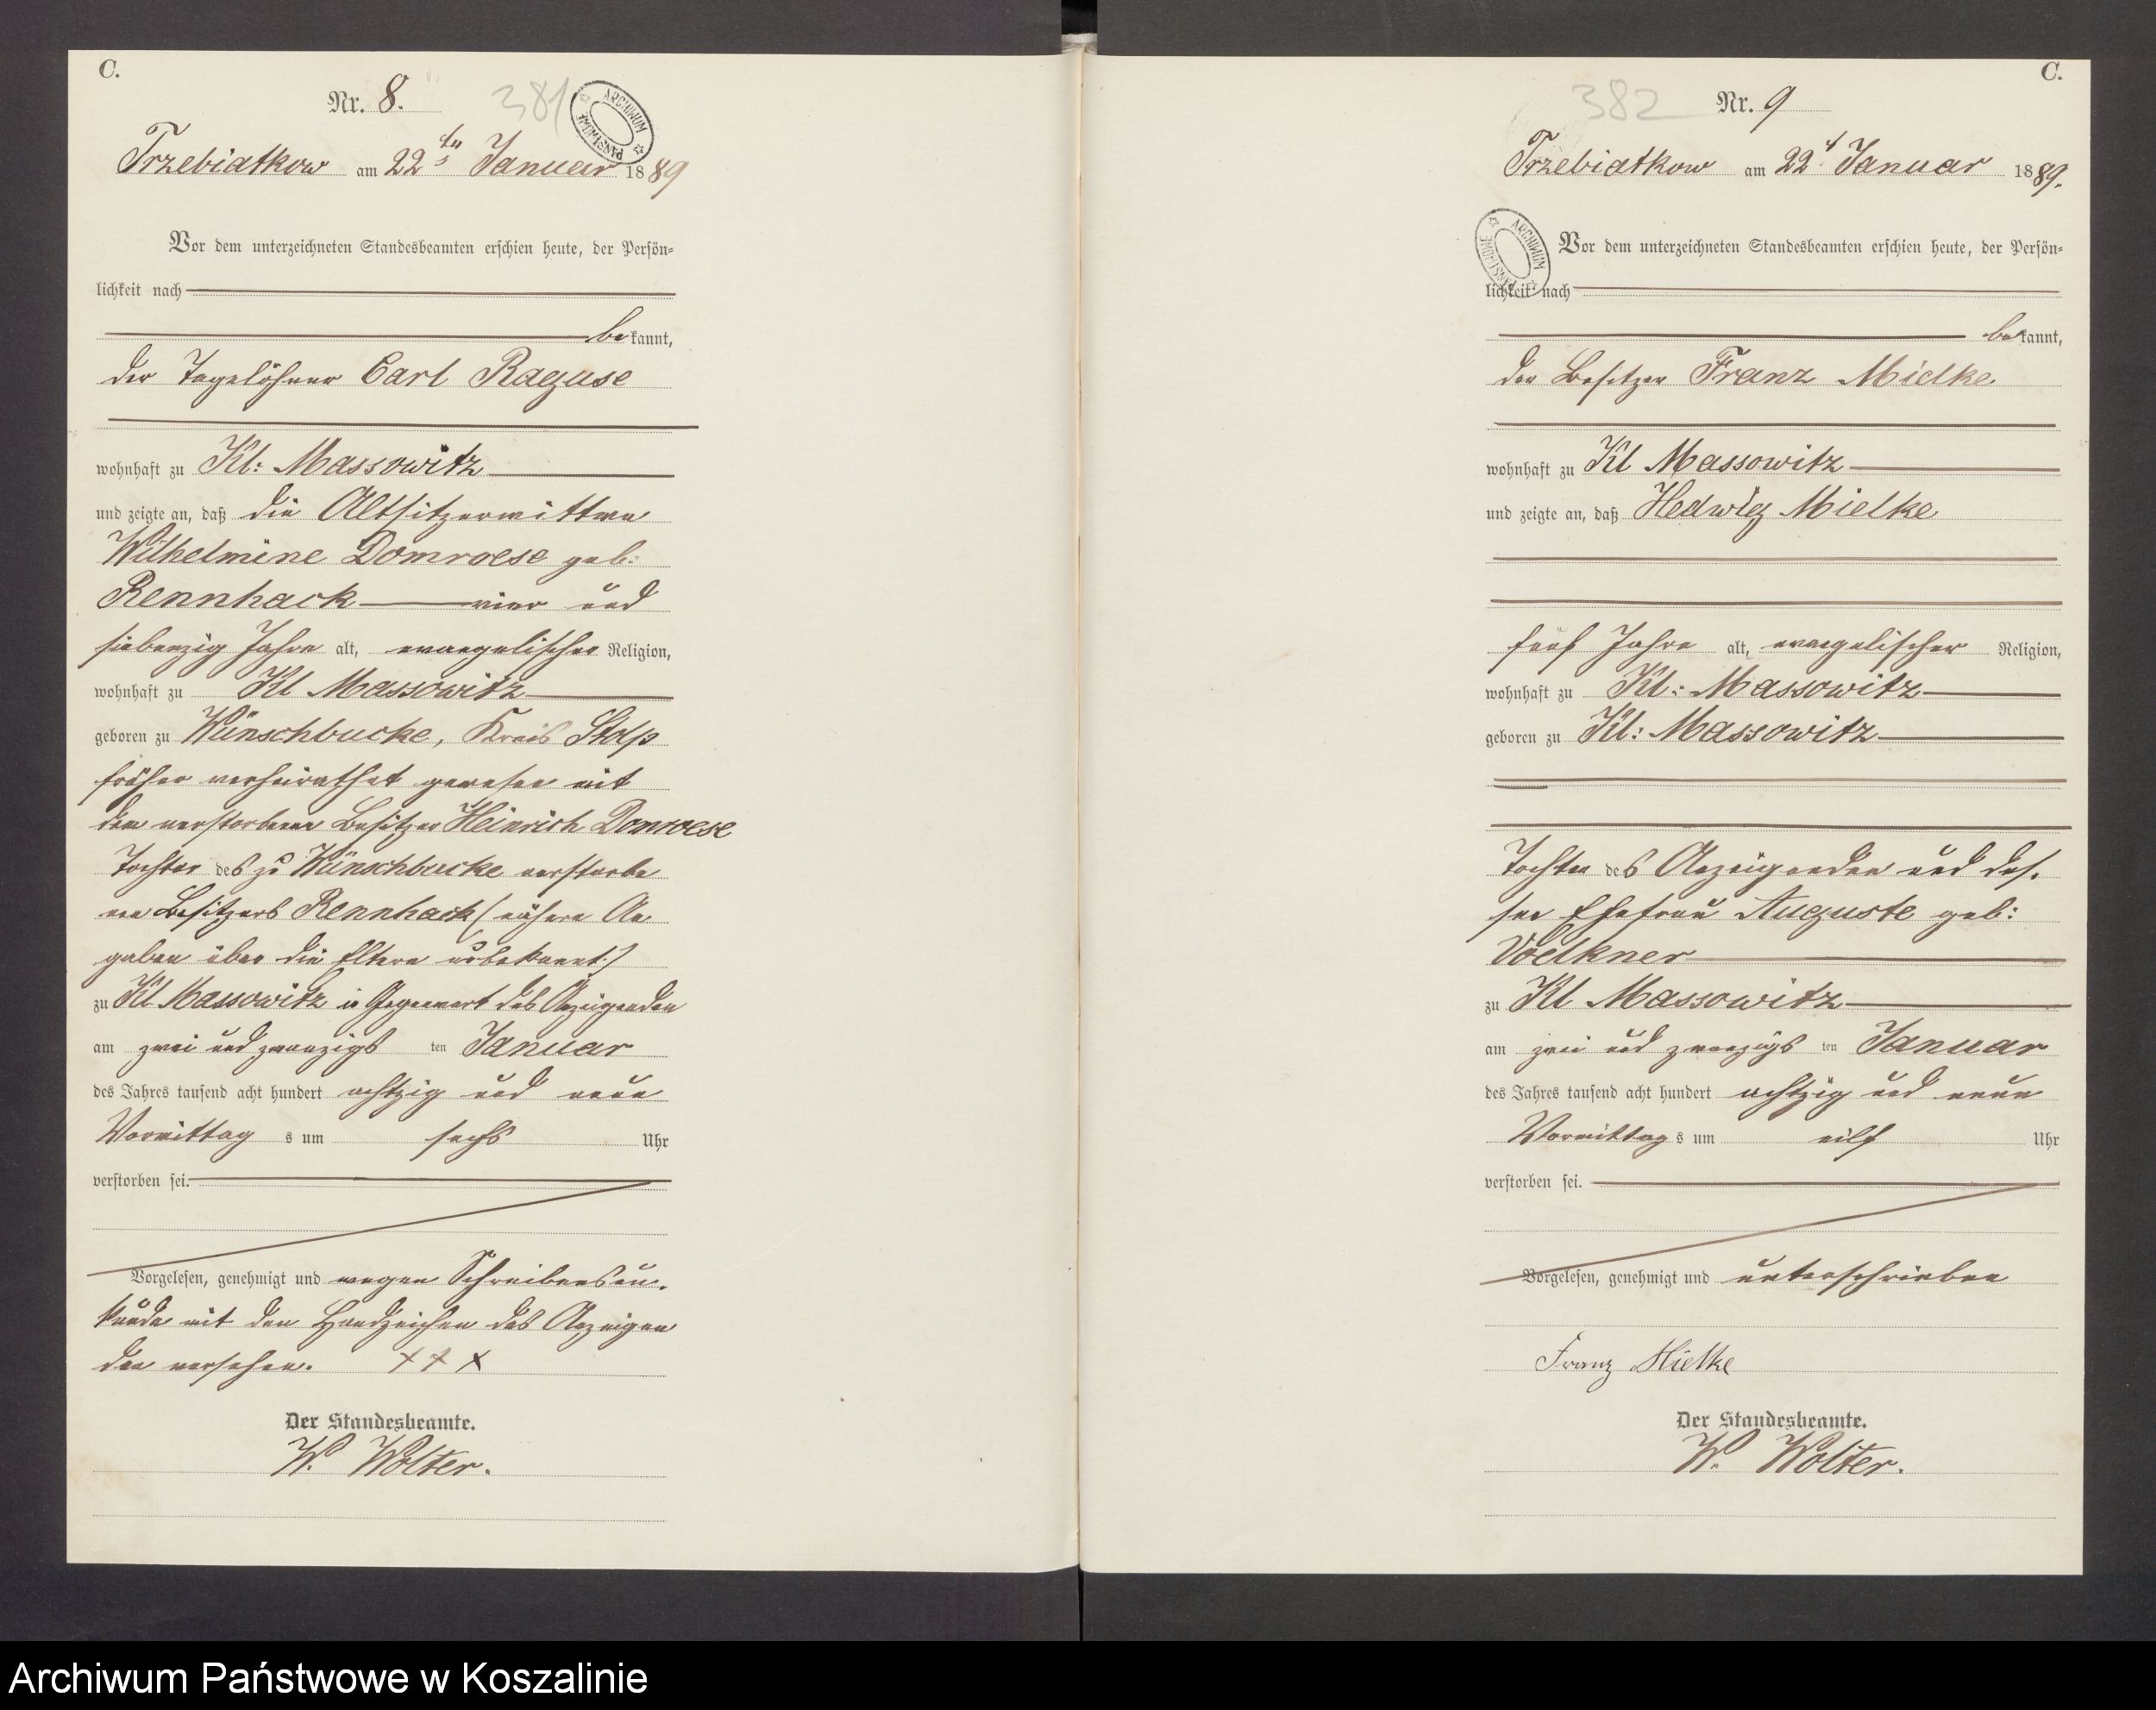 C.
Nr. 8.
381
ARCHIWUM PAŃSTWOWE
Trzebiatkow am 22ten Januar 1889
Vor dem unterzeichneten Standesbeamten erschien heute, der Persön=
lichkeit nach
bekannt,
der Tagelöhner Carl Raguse
wohnhaft zu Kl: Massowitz
und zeigte an, daß die Altsitzerwittwe
Wilhelmine Domroese geb:
Rennhack vier und
siebenzig Jahre alt, evangelischer Religion,
wohnhaft zu Kl Massowitz
geboren zu Wünschbucke, Kreis Stolp
früher verheirathet gewesen mit
dem verstorbenen Besitzer Heinrich Domroese
Tochter des zu Wünschbucke verstorbe
nen Besitzers Rennhack (nähere An
gaben über die Eltern unbekannt.)
zu Kl Massowitz in Gegenwart des Anzeigenden
am zwei und zwanzigsten Januar
des Jahres tausend acht hundert achtzig und neun
Vormittags um sechs Uhr
verstorben sei.
Vorgelesen, genehmigt und wegen Schreibensun.
kunde mit den Handzeichen des Anzeigen
den versehen. + + +
Der Standesbeamte.
W. Wolter.
C.
382
Nr. 9
Trzebiatkow am 22t. Januar 1889.
ARCHIWUM PAŃSTWOWE
Vor dem unterzeichneten Standesbeamten erschien heute, der Persön=
lichkeit nach
bekannt,
der Besitzer Franz Mielke
wohnhaft zu Kl Massowitz
und zeigte an, daß Hedwig Mielke
fünf Jahre alt, evangelischer Religion,
wohnhaft zu Kl: Massowitz
geboren zu Kl: Massowitz
Tochter des Anzeigenden und des.
sen Ehefrau Auguste geb:
Voelkner
zu Kl Massowitz
am zwei und zwanzigsten Januar
des Jahres tausend acht hundert achtzig und neun
Vormittags um eilf Uhr
verstorben sei.
Vorgelesen, genehmigt und unterschrieben
Franz Mielke
Der Standesbeamte.
W. Wolter.
Archiwum Państwowe w Koszalinie